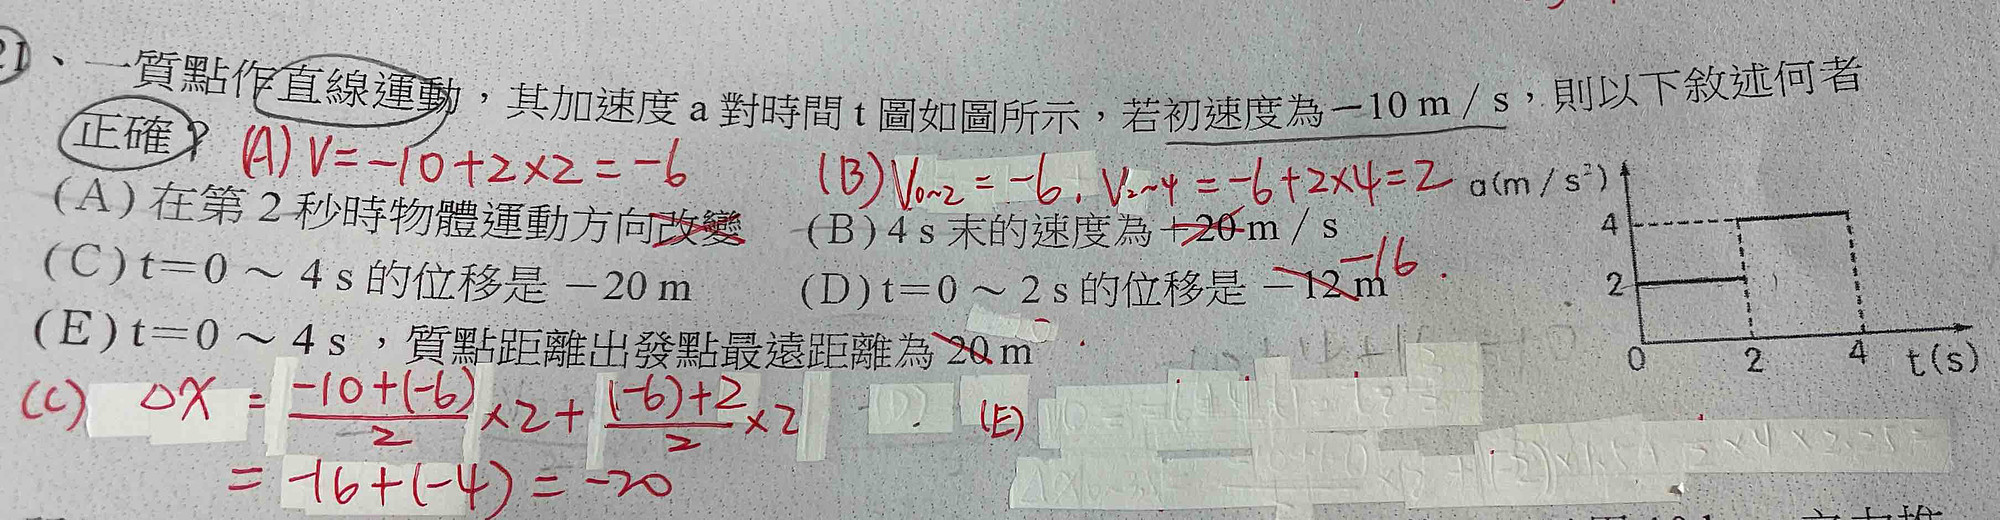 21、一質點作直線運動，其加速度 a 對時間 t 圖如圖所示，若初速度為－10 m / s，則以下敘述何者
正確？
(A) V = -10+2×2 = -6
(B) V0~2 = -6. V2~4 = -6+2×4=2
(A) 在第 2 秒時物體運動方向改變
(B) 4 s 末的速度為＋20 m / s
(C) t＝0 ～ 4 s 的位移是 －20 m
(D) t＝0 ～ 2 s 的位移是 －12 m
-16.
(E) t＝0 ～ 4 s ，質點距離出發點最遠距離為 20 m
a(m / s²)
4
2
0 2 4 t(s)
(C) △X = -10+(-6)/2 ×2+ (-6)+2/2 ×2
= -16+(-4) = -20
(E)